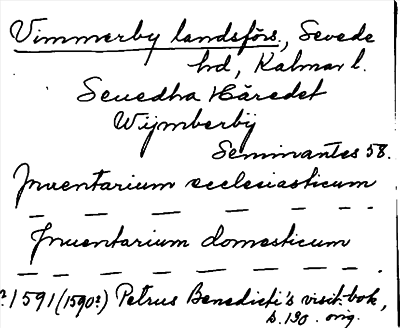 Vimmerby landsförs., Sevede
hd, Kalmar l.
Seuedha Häredet
Wijmberbij
Seminantes 58.
Inuentarium ecclesiasticum
— — — — — — — .
Inuentarium domesticum
— — — — — — — .
?1591 (1590?) Petrus Benedicti's visit.bok,
s. 190. orig.